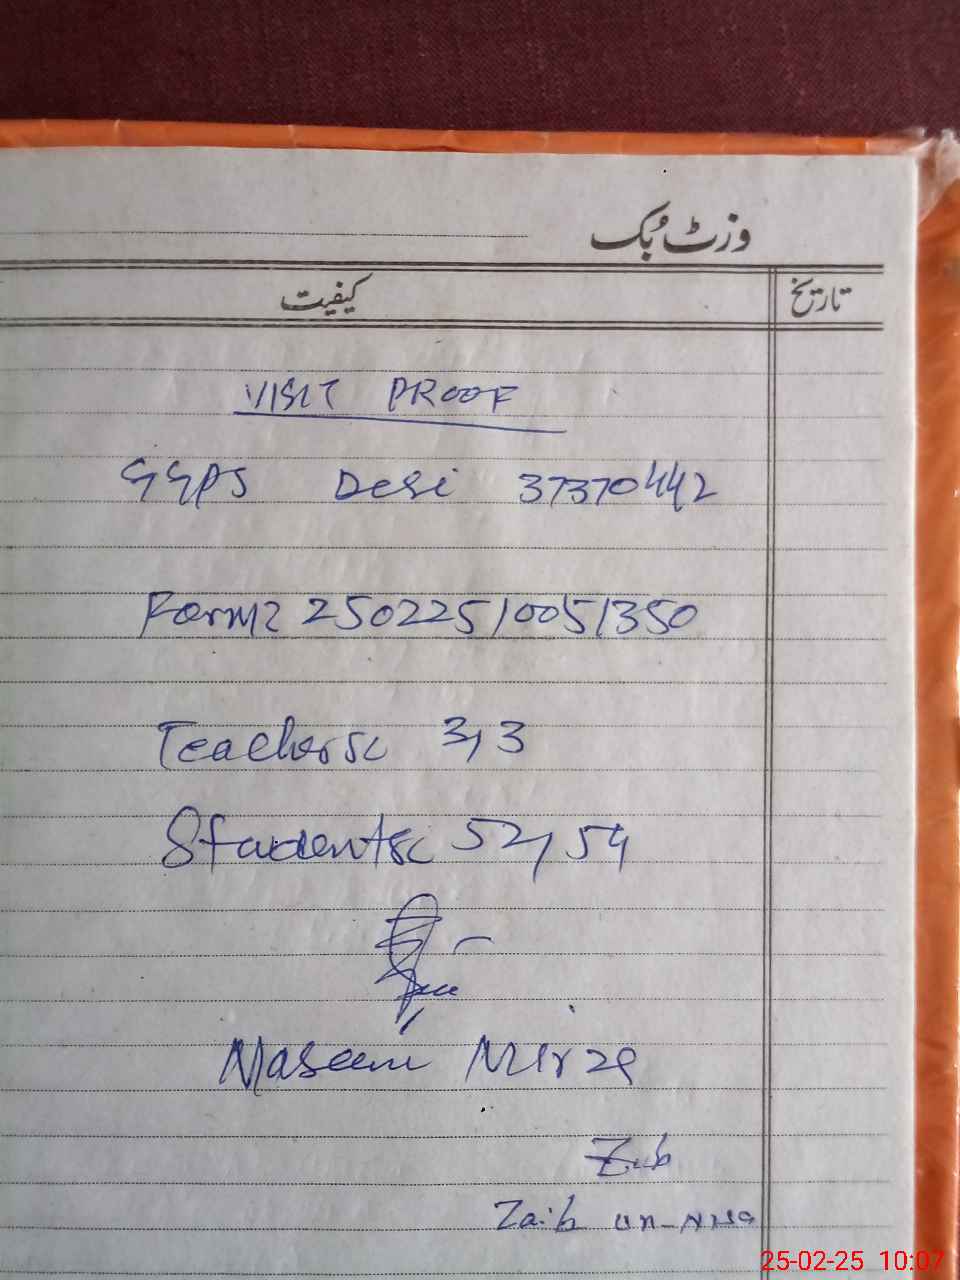 وزٹ بُک
تاریخ کیفیت
VISIT PROOF
GGPS Desi 37370442
Form: 25022510051350
Teachers: 3,3
Students: 52,54
Naseem Mirza
Zaib
Zaib un-Nisa
25-02-25 10:07